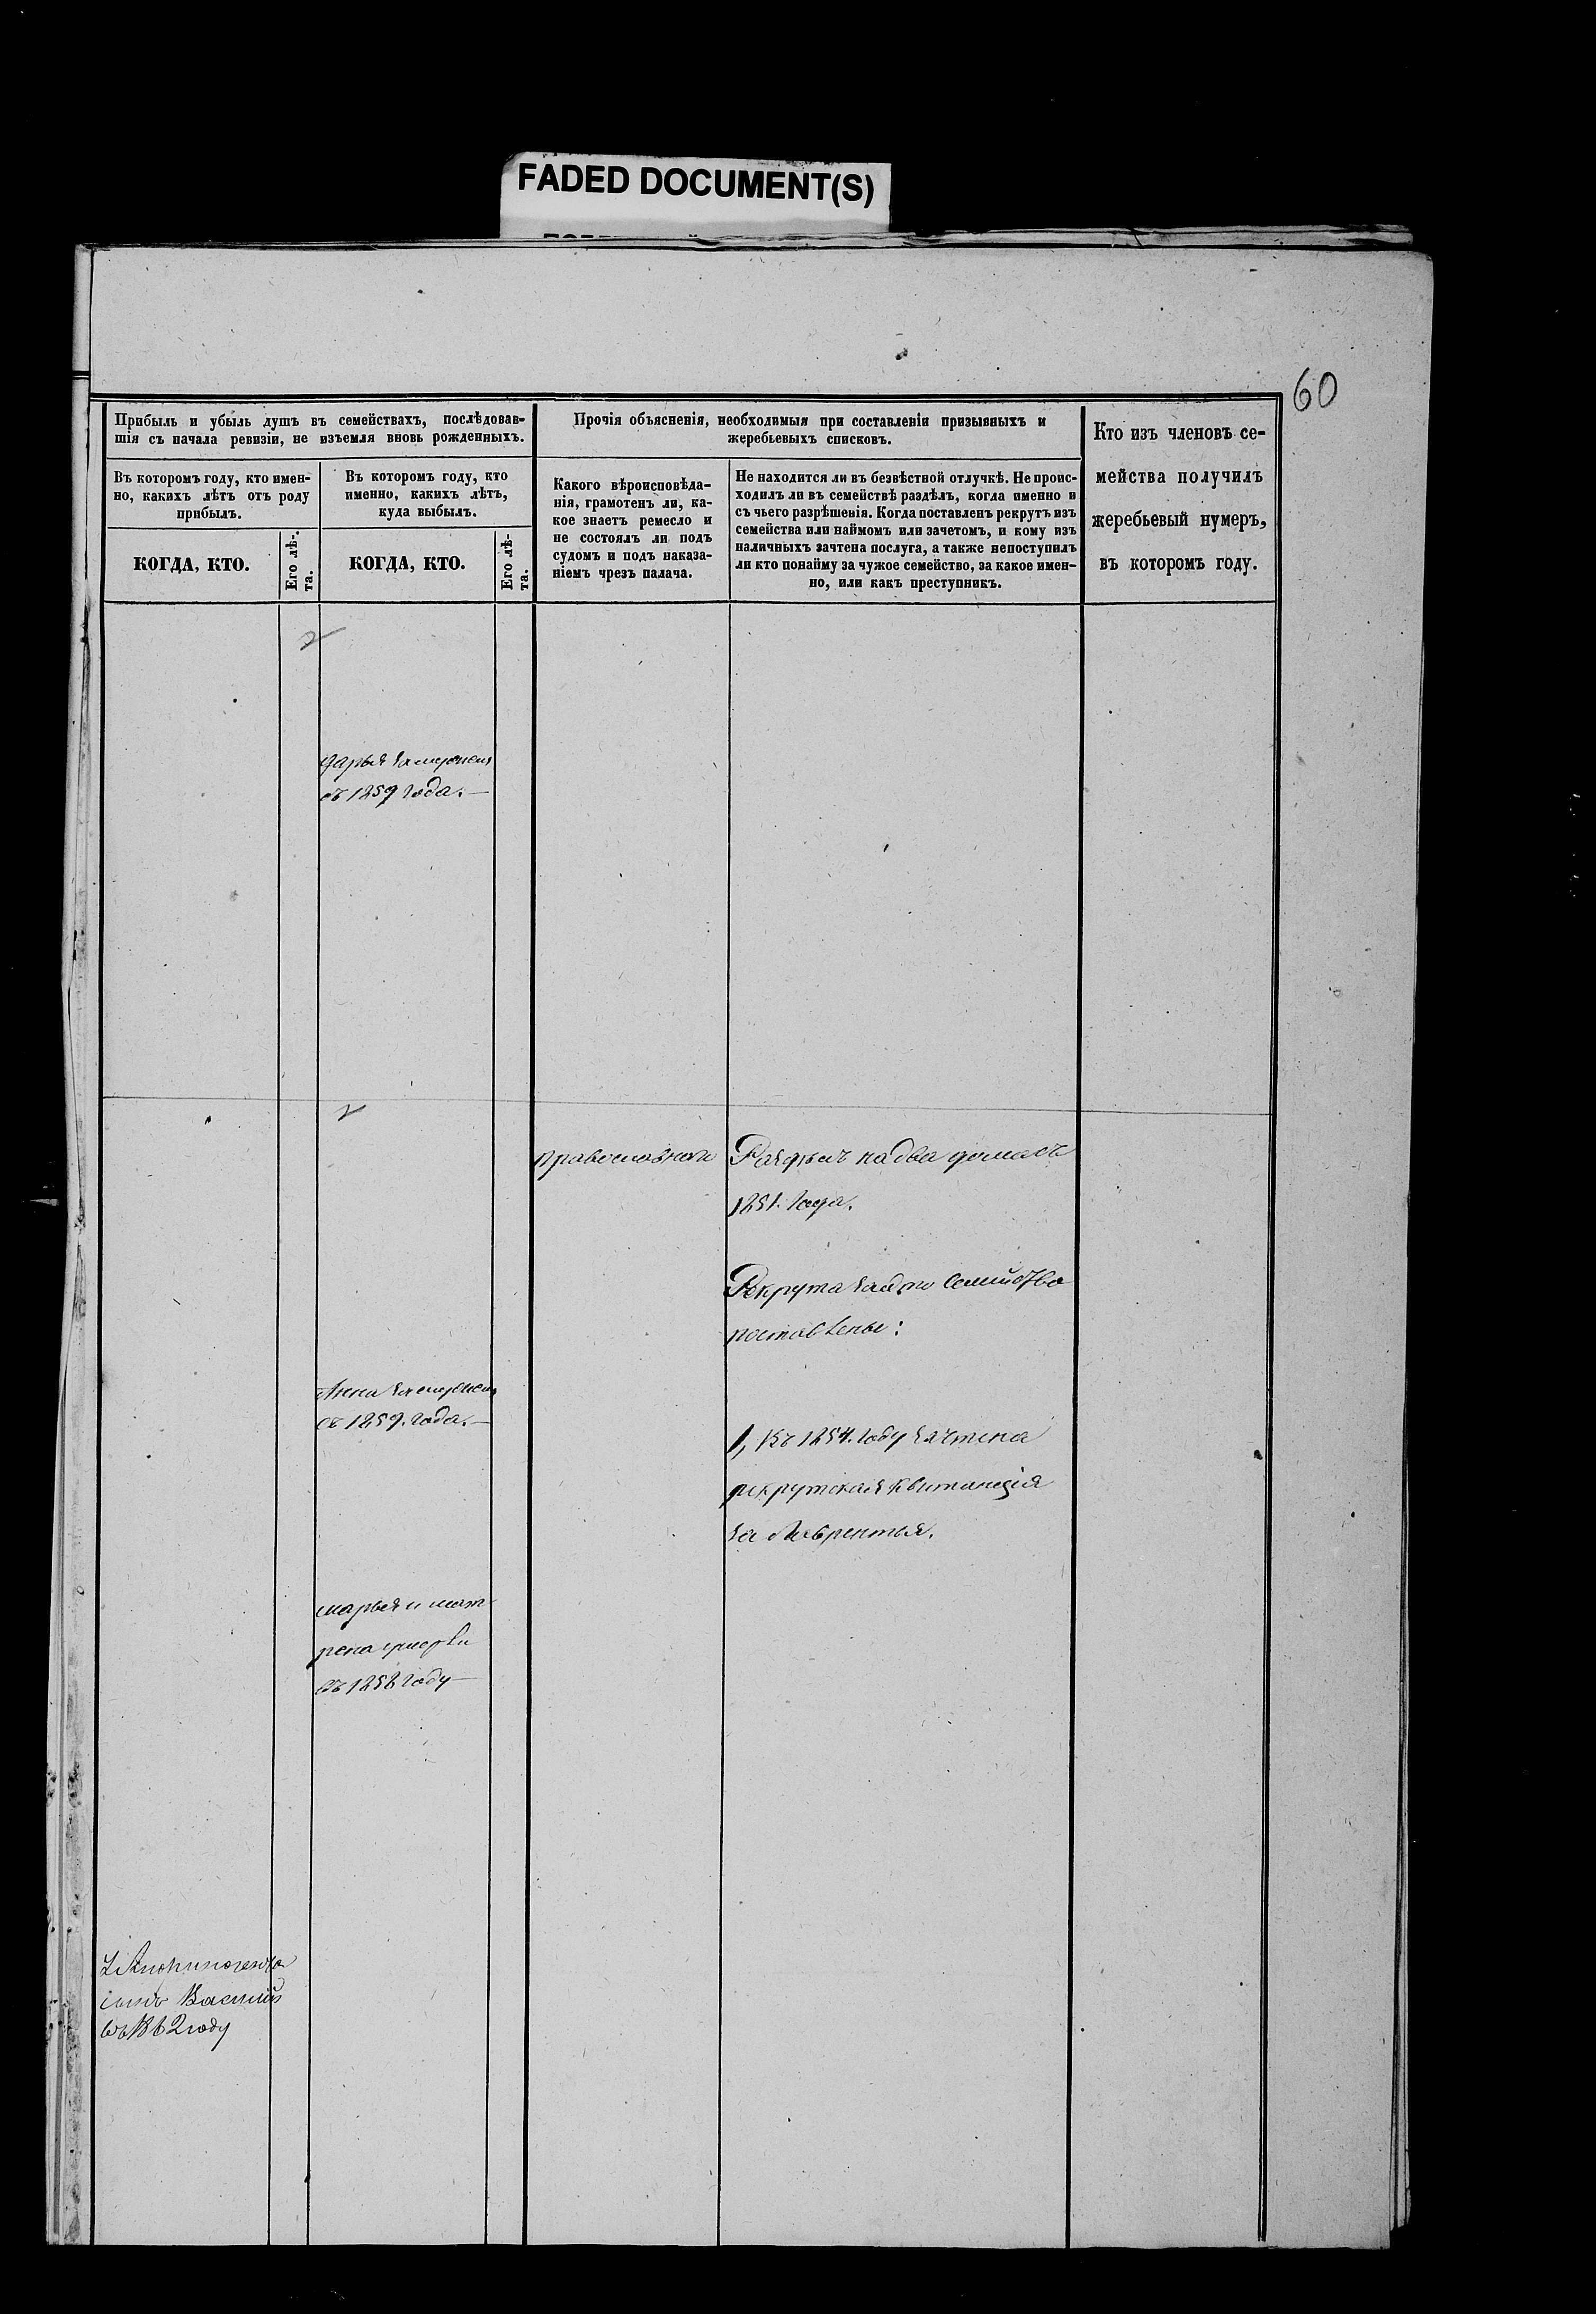 FADED DOCUMENT(S)
60
Прибыль и убыль душъ въ семействахъ, послѣдовав-
шія съ начала ревизіи, не изъемля вновь рожденныхъ.
Въ которомъ году, кто имен-
но, какихъ лѣтъ отъ роду
прибылъ.
КОГДА, КТО.
Его лѣ-
та.
Въ которомъ году, кто
именно, какихъ лѣтъ,
куда выбылъ.
КОГДА, КТО.
Его лѣ-
та.
Прочія объясненія, необходимыя при составленіи призывныхъ и
жеребьевыхъ списковъ.
Какого вѣроисповѣда-
нія, грамотенъ ли, ка-
кое знаетъ ремесло и
не состоялъ ли подъ
судомъ и подъ наказа-
ніемъ чрезъ палача.
Не находится ли въ безвѣстной отлучкѣ. Не проис-
ходилъ ли въ семействѣ раздѣлъ, когда именно и
съ чьего разрѣшенія. Когда поставленъ рекрутъ изъ
семейства или наймомъ или зачетомъ, и кому изъ
наличныхъ зачтена послуга, а также непоступилъ
ли кто понайму за чужое семейство, за какое имен-
но, или какъ преступникъ.
Кто изъ членовъ се-
мейства получилъ
жеребьевый нумеръ,
въ которомъ году.
дарья замужемъ
съ 1859 года.—
православнаго
Раздѣлъ на два дома съ
1851. года.
Рекрута съ семийства
поставлены:
Анна замужемъ
съ 1859. года.—
1, Въ 1854. году зачтена
рекрутская квитанція
за Лаврентья.
марья и мат
рена умерли
въ 1858 году—
сынъ Василий
въ 1862 году